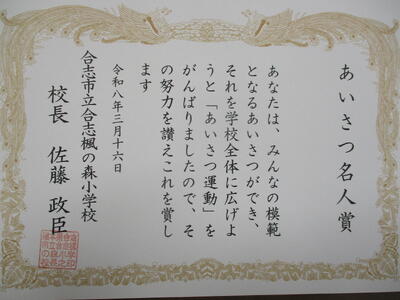 あいさつ名人賞
あなたは、みんなの模範
となるあいさつができ、
それを学校全体に広げよ
うと「あいさつ運動」を
がんばりましたので、そ
の努力を讃えこれを賞し
ます
令和八年三月十六日
合志市立合志楓の森小学校
校長 佐藤政臣